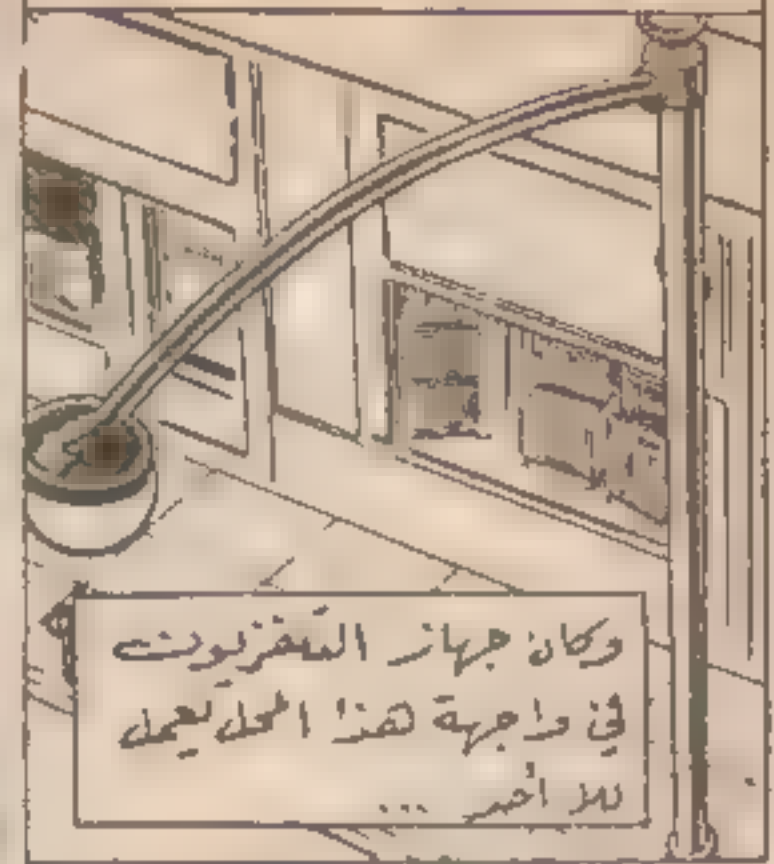 وكان جهاز التلفزيون
في واجهة هذا المحل يعمل
...